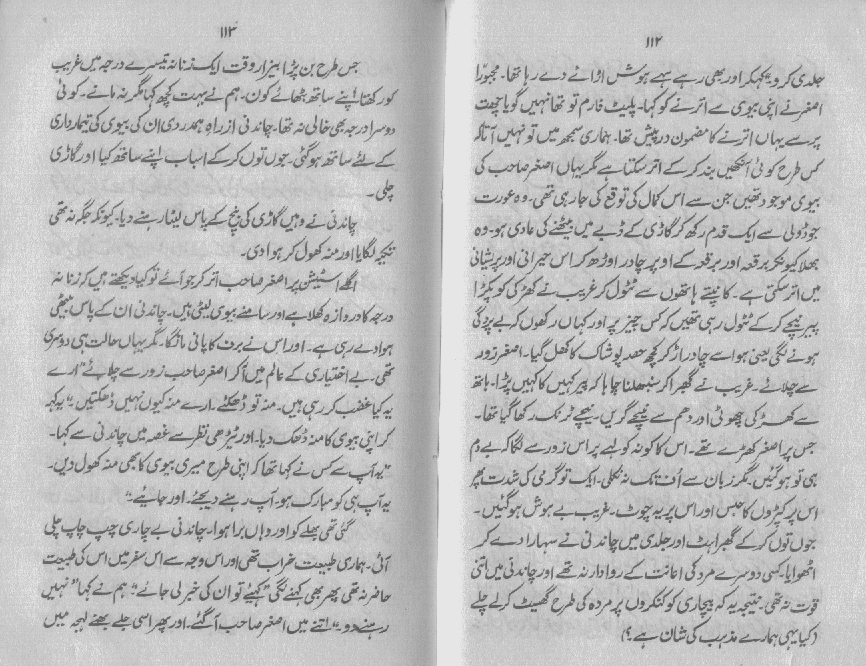 ۱۱۲
جلدی کرو یہ کہکر اور بھی رہے سہے ہوش اڑانے دے رہا تھا۔ مجبوراً
اصغر نے اپنی بیوی سے اترنے کو کہا۔ پلیٹ فارم تو تھا نہیں گویا چھت
پر سے یہاں اترنے کا مضمون درپیش تھا۔ ہماری سمجھ میں تو نہیں آتا کہ
کس طرح کوئی آنکھیں بند کر کے اتر سکتا ہے مگر یہاں اصغر صاحب کی
بیوی موجود تھیں جن سے اس کمال کی توقع کی جا رہی تھی۔ وہ عورت
جو ڈولی سے ایک قدم رکھ کر گاڑی کے ڈبے میں بیٹھنے کی عادی ہو۔ وہ
بھلا کیونکر برقعہ اور برقعہ کے اوپر چادر اوڑھ کر اس حیرانی اور پریشانی
میں اتر سکتی ہے۔ کانپتے ہاتھوں سے ٹٹول کر غریب نے کھڑکی کو پکڑا
پیر نیچے کر کے ٹٹول رہی تھیں کہ کس چیز پر اور کہاں رکھوں کہ بے پردگی
ہونے لگی یعنی ہوا سے چادر اڑ کر کچھ حصہ پوشاک کا کھل گیا۔ اصغر زور
سے چلائے۔ غریب نے گھبرا کر سنبھلنا چاہا کہ پیر کہیں کا کہیں پڑا۔ ہاتھ
سے کھڑکی چھوٹی اور دھم سے نیچے گریں۔ نیچے ٹرنک رکھا گیا تھا۔
جس پر اصغر کھڑے تھے۔ اس کا کونہ کولہے پر اس زور سے لگا کہ بے دم
ہی تو ہو گئیں۔ مگر زبان سے اُف تک نہ نکلی۔ ایک تو گرمی کی شدت پھر
اس پر کپڑوں کا حبس اور اس پر یہ چوٹ۔ غریب بے ہوش ہو گئیں۔
جوں توں کر کے گھبراہٹ اور جلدی میں چاندنی نے سہارا دے کر
اٹھوایا۔ کسی دوسرے مرد کی اعانت کے روادار نہ تھے اور چاندنی میں اتنی
قوت نہ تھی۔ نتیجہ یہ کہ بیچاری کو کنکروں پر مردہ کی طرح گھسیٹ کر لے چلے
(کیا یہی ہمارے مذہب کی شان ہے؟)
۱۱۳
جس طرح بن پڑا بیزار وقت ایک زنانہ تیسرے درجہ میں غریب
کو رکھتا اپنے ساتھ بٹھائے کون۔ ہم نے بہت کچھ کہا مگر نہ مانے۔ کوئی
دوسرا درجہ بھی خالی نہ تھا۔ چاندنی ازراہِ ہمدردی ان کی بیوی کی تیمارداری
کے لئے ساتھ ہو گئی۔ جوں توں کر کے اسباب اپنے ساتھ کیا اور گاڑی
چلی۔
چاندنی نے وہیں گاڑی کی بنچ کے پاس لیٹا رہنے دیا۔ کیونکہ جگہ نہ تھی
تکیہ لگایا اور منہ کھول کر ہوا دی۔
اگلے اسٹیشن پر اصغر صاحب اتر کر جو آئے تو کیا دیکھتے ہیں کہ زنانہ
درجہ کا دروازہ کھلا ہے اور سامنے بیوی لیٹی ہیں۔ چاندنی ان کے پاس بیٹھی
ہوا دے رہی ہے۔ اور اس نے برف کا پانی مانگا۔ مگر یہاں حالت ہی دوسری
تھی۔ بے اختیاری کے عالم میں آ کر اصغر صاحب زور سے چلائے "ارے
یہ کیا غضب کر رہی ہیں۔ منہ تو ڈھکئے۔ ارے منہ کیوں نہیں ڈھکتیں"۔ یہ کہہ
کر اپنی بیوی کا منہ ڈھک دیا۔ اور ٹیڑھی نظر سے غصہ میں چاندنی سے کہا۔
"یہ آپ سے کس نے کہا تھا کہ اپنی طرح میری بیوی کا بھی منہ کھول دیں۔
یہ آپ ہی کو مبارک ہو۔ آپ رہنے دیجئے۔ اور جایئے"۔
گئی تھی بھلے کو اور وہاں برا ہوا۔ چاندنی بے چاری چپ چاپ چلی
آئی۔ ہماری طبیعت خراب تھی اور اس وجہ سے اس سفر میں اس کی طبیعت
حاضر نہ تھی پھر بھی کہنے لگی "کہیئے تو ان کی خبر لی جائے"۔ ہم نے کہا "نہیں
رہنے دو"۔ اتنے میں اصغر صاحب آ گئے۔ اور پھر اسی جلے بھنے لہجہ میں